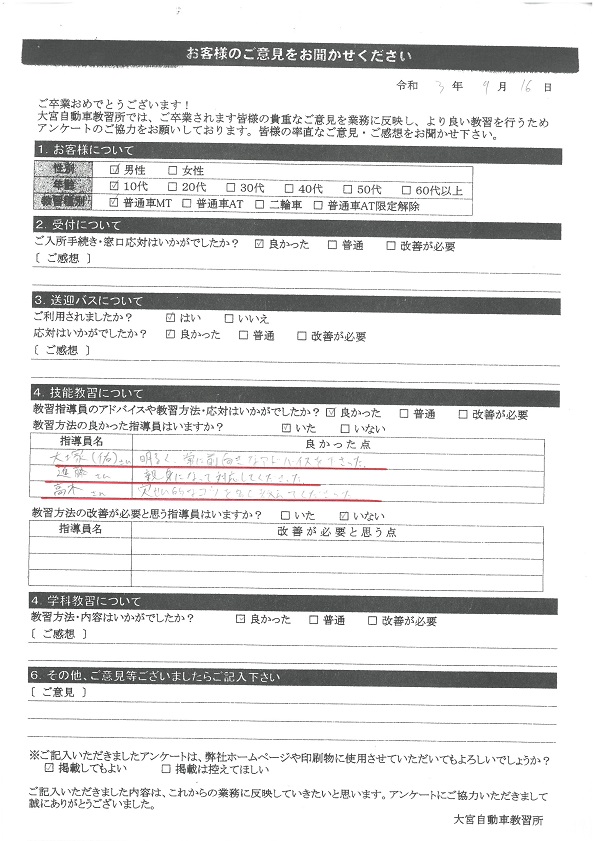 お客様のご意見をお聞かせください
令和 3 年 9 月 16 日
ご卒業おめでとうございます！
大宮自動車教習所では、ご卒業されます皆様の貴重なご意見を業務に反映し、より良い教習を行うため
アンケートのご協力をお願いしております。皆様の率直なご意見・ご感想をお聞かせ下さい。
1. お客様について
性別 ☑ 男性 □ 女性
年齢 ☑ 10代 □ 20代 □ 30代 □ 40代 □ 50代 □ 60代以上
教習種別 ☑ 普通車MT □ 普通車AT □ 二輪車 □ 普通車AT限定解除
2. 受付について
ご入所手続き・窓口応対はいかがでしたか？ ☑ 良かった □ 普通 □ 改善が必要
〔 ご感想 〕
3. 送迎バスについて
ご利用されましたか？ ☑ はい □ いいえ
応対はいかがでしたか？ ☑ 良かった □ 普通 □ 改善が必要
〔 ご感想 〕
4. 技能教習について
教習指導員のアドバイスや教習方法・応対はいかがでしたか？ ☑ 良かった □ 普通 □ 改善が必要
教習方法の良かった指導員はいますか？ ☑ いた □ いない
指導員名 良かった点
大塚(佑)さん 明るく、常に前向きなアドバイスをくださった。
進藤さん 親身になって対応してくださった。
高木さん
教習方法の改善が必要と思う指導員はいますか？ □ いた ☑ いない
指導員名 改善が必要と思う点
4. 学科教習について
教習方法・内容はいかがでしたか？ ☑ 良かった □ 普通 □ 改善が必要
〔 ご感想 〕
6. その他、ご意見等ございましたらご記入下さい
〔 ご意見 〕
※ご記入いただきましたアンケートは、弊社ホームページや印刷物に使用させていただいてもよろしいでしょうか？
☑ 掲載してもよい □ 掲載は控えてほしい
ご記入いただきました内容は、これからの業務に反映していきたいと思います。アンケートにご協力いただきまして
誠にありがとうございました。
大宮自動車教習所